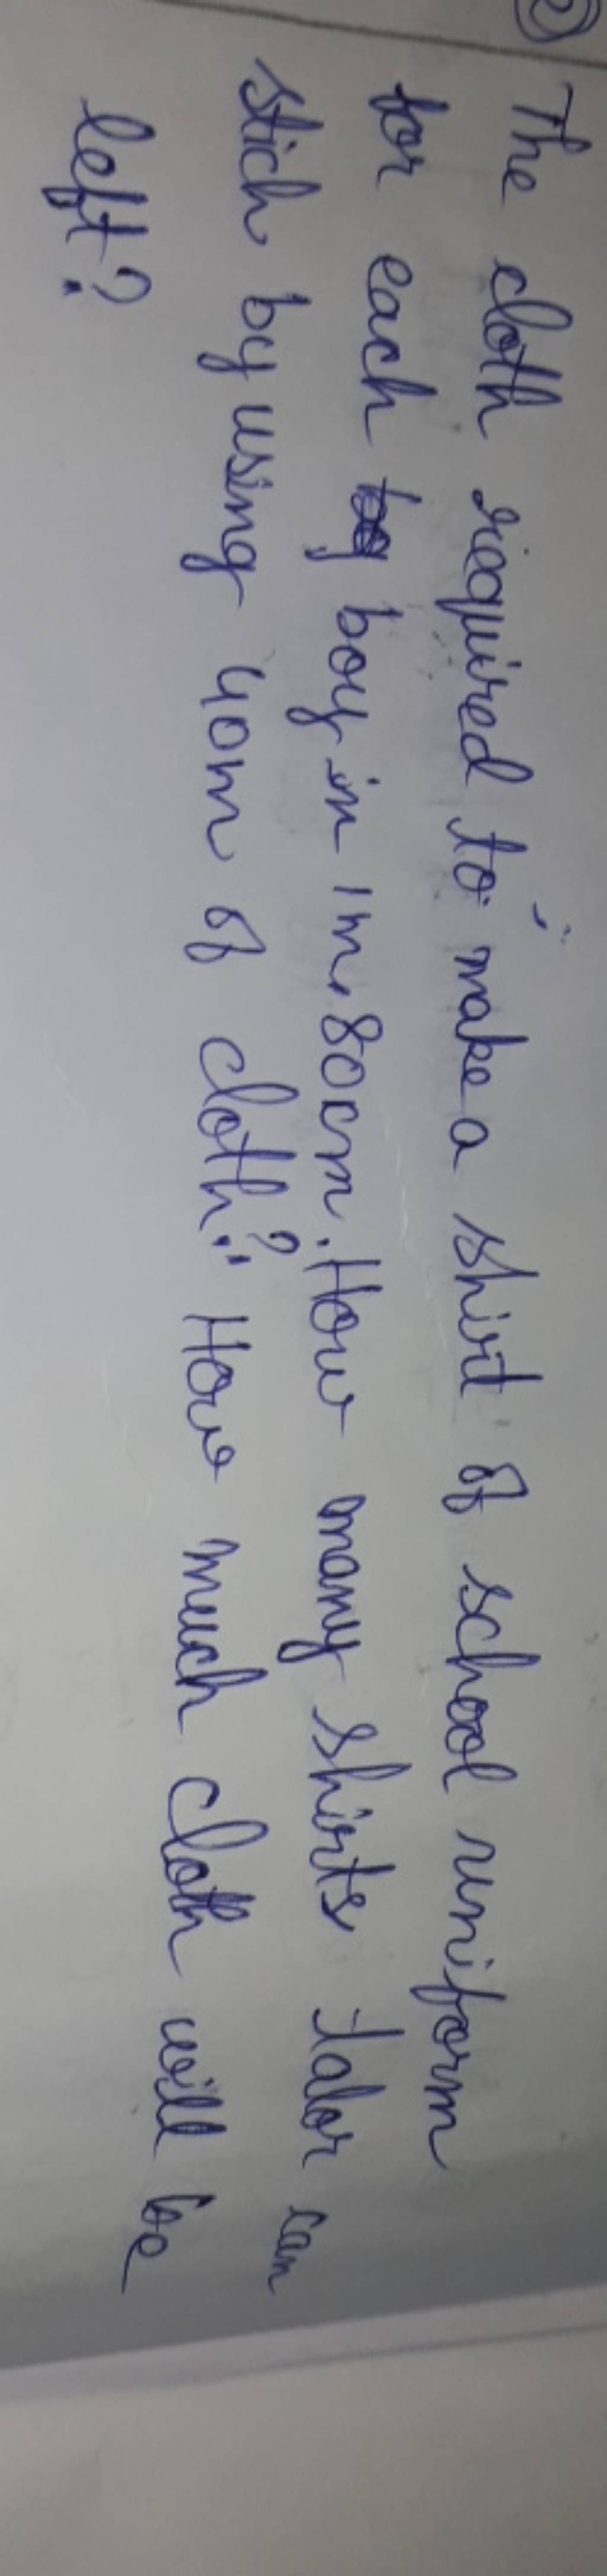 The cloth required to make a shirt of school uniform
for each boy in 1m, 80cm. How many shirts talor can
stich by using 40m of cloth? How much cloth will be
left?